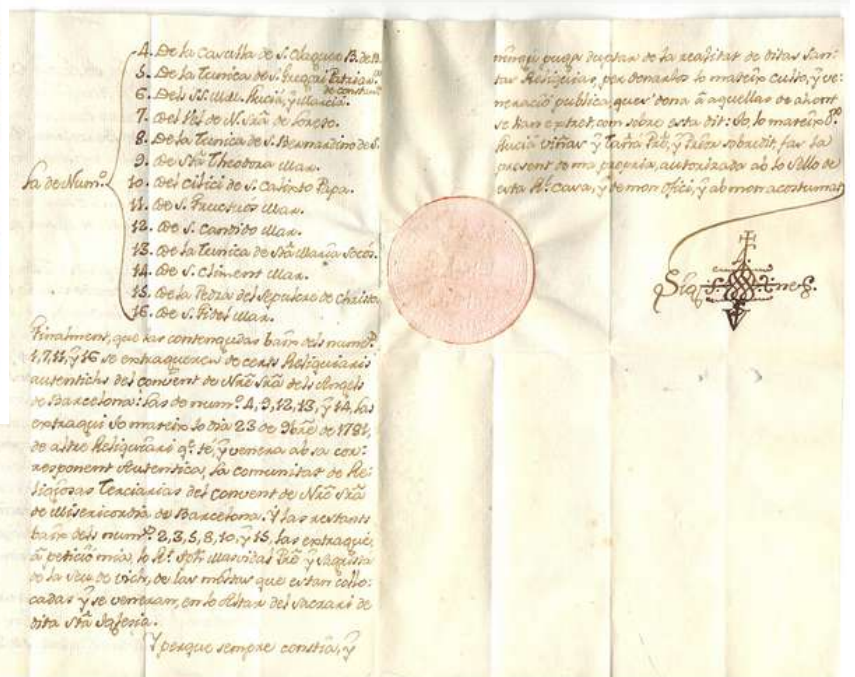 4. De la Cavalla de S. Olaguer B. de B.
5. De la Tunica de S. Gregori Patriar.
de Constant.
6. Dels SS. Mm. Llucià, ÿ Marcià.
7. Del Vel de N. Srã. de Loreto.
8. De la Tunica de S. Bernardino de S.
9. De Stã Theodora Mar.
la de Num.º
10. Del Cilici de S. Calixto Papa.
11. De S. Fructuós Mar.
12. De S. Candido Mar.
13. De la Tunica de Stã Maria Socós.
14. De S. Climent Mar.
15. De la Pedra del Sepulcro de Christo
16. De S. Fidel Mar.
Finalment, que las contengudas baix dels num.s
1, 7, 11, ÿ 16 se extragueren de certs Reliquiaris
autentichs del convent de Nrẽ Srã dels Angels
de Barcelona: las de num.s 4, 9, 12, 13, ÿ 14, las
extraguí Jo mateix lo dia 23 de 9brẽ de 1781,
de altre Reliquiari q.e té, ÿ venera ab sa cor-
responent Autentica, la comunitat de Re-
ligiosas Terciarias del convent de Nrẽ Srã
de Misericordia de Barcelona. Y las restants
baix dels num.s 2, 3, 5, 8, 10, ÿ 15, las extragué,
â petició mia, lo R.t Masvidal Prẽ ÿ Sagristá
de la Seu de Vich, de las mõltas que estan collo-
cadas ÿ se veneran, en lo Altar del Sacrari de
dita Stã Iglesia.
Y perque sempre constia, ÿ
ningú puga duptar de la realitat de ditas San-
tas Reliquias, per donarlos lo mateix culto, ÿ ve-
neració publica, ques dona â aquellas de ahont
se han extret, com sobre esta dit: Jo, lo mateix
Llucià Viñas ÿ Prẽ, ÿ Prior sobredit, fas la
present de ma propria, autorizada ab lo Sello de
esta R.l Casa, ÿ de mon ofici, ÿ ab mon acostumat
Sig ✠ ne.